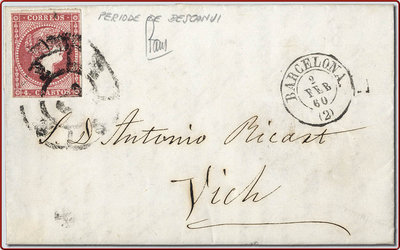 CORREOS
4. CUARTOS
PERIODE DE DESCANVI
BARCELONA
2
FEB
60
(2)
S. D. Antonio Ricast
Vich